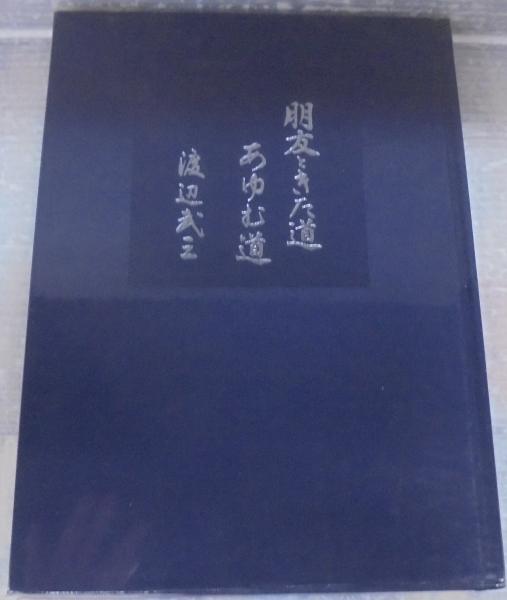 朋友ときた道
あゆむ道
渡辺武三